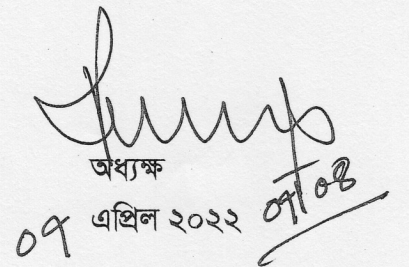 অধ্যক্ষ
০৭ এপ্রিল ২০২২ ০৭/০৪